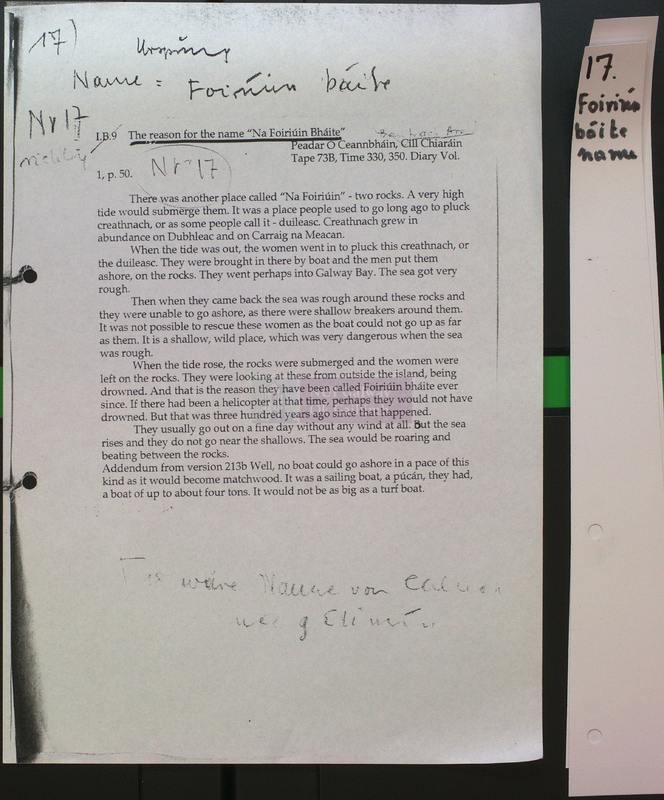 17)
Ursprung
Name = Foiriúin báite
Nr 17
I.B.9 The reason for the name "Na Foiriúin Bháite"
Peadar Ó Ceannbháin, Cill Chiaráin
richtig
Nr 17
Tape 73B, Time 330, 350. Diary Vol.
1, p. 50.
There was another place called "Na Foiriúin" - two rocks. A very high
tide would submerge them. It was a place people used to go long ago to pluck
creathnach, or as some people call it - duileasc. Creathnach grew in
abundance on Dubhleac and on Carraig na Meacan.
When the tide was out, the women went in to pluck this creathnach, or
the duileasc. They were brought in there by boat and the men put them
ashore, on the rocks. They went perhaps into Galway Bay. The sea got very
rough.
Then when they came back the sea was rough around these rocks and
they were unable to go ashore, as there were shallow breakers around them.
It was not possible to rescue these women as the boat could not go up as far
as them. It is a shallow, wild place, which was very dangerous when the sea
was rough.
When the tide rose, the rocks were submerged and the women were
left on the rocks. They were looking at these from outside the island, being
drowned. And that is the reason they have been called Foiriúin bháite ever
since. If there had been a helicopter at that time, perhaps they would not have
drowned. But that was three hundred years ago since that happened.
They usually go out on a fine day without any wind at all. But the sea
rises and they do not go near the shallows. The sea would be roaring and
beating between the rocks.
Addendum from version 213b Well, no boat could go ashore in a pace of this
kind as it would become matchwood. It was a sailing boat, a púcán, they had,
a boat of up to about four tons. It would not be as big as a turf boat.
wäre Name von
17.
Foiriúin
báite
name